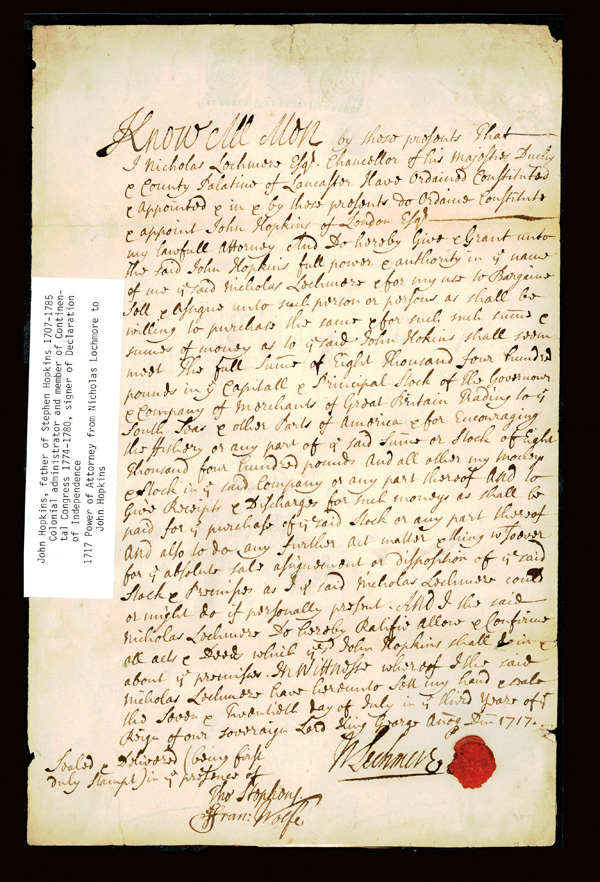 Know All Men by these presents That
I Nicholas Lechmere Esqr. Chancellor of his Majesties Duchy
& County Palatine of Lancaster Have Ordained Constituted
& Appointed & in & by these presents do Ordaine Constitute
& appoint John Hopkins of London Esqr
my lawfull Attorney And Do hereby Give & Grant unto
the said John Hopkins full power & authority in ye name
of me ye said Nicholas Lechmere & for my use to Bargaine
Sell & Assigne unto such person or persons as shall be
willing to purchase the same & for such such sume &
sumes of money as to ye said John Hokins shall seem
meet The full Sume of Eight Thousand four hundred
pounds in ye Capitall & Principal Stock of the Governour
& Company of Merchants of Great Britain Trading to ye
South Seas & other Parts of America & for Encouraging
the Fishery or any part of ye said Sume or Stock of Eight
Thousand four hundred pounds And all other my money
& Stock in ye said Company or any part thereof And to
Give Receipts & Discharges for such moneys as shall be
paid for ye purchase of ye said Stock or any part thereof
And also to do any further Act matter & thing wtsoever
for ye absolute sale assignement or disposition of ye said
Stock & Premises as I ye said Nicholas Lechmere could
or might do if personally present. And I the said
Nicholas Lechmere Do hereby Ratifie allow & Confirme
all acts & Deeds which ye sd John Hopkins shall do in &
about ye premisses. In Wittnesse whereof I the said
Nicholas Lechmere have hereunto Sett my hand & seale
the Seven & Twentieth day of July in ye third Yeare of ye
Reign of our sovereign Lord King George Anoq Dm 1717.
N Lechmere
Sealed & Delivered (being first
duly stampt) in ye presence of
Tho Hopkins
Fran: Wolfe
John Hopkins, father of Stephen Hopkins 1707-1785
Colonial administrator and member of Continen-
tal Congress 1774-1780, signer of Declaration
of Independence
1717 Power of Attorney from Nicholas Lochmore to
John Hopkins